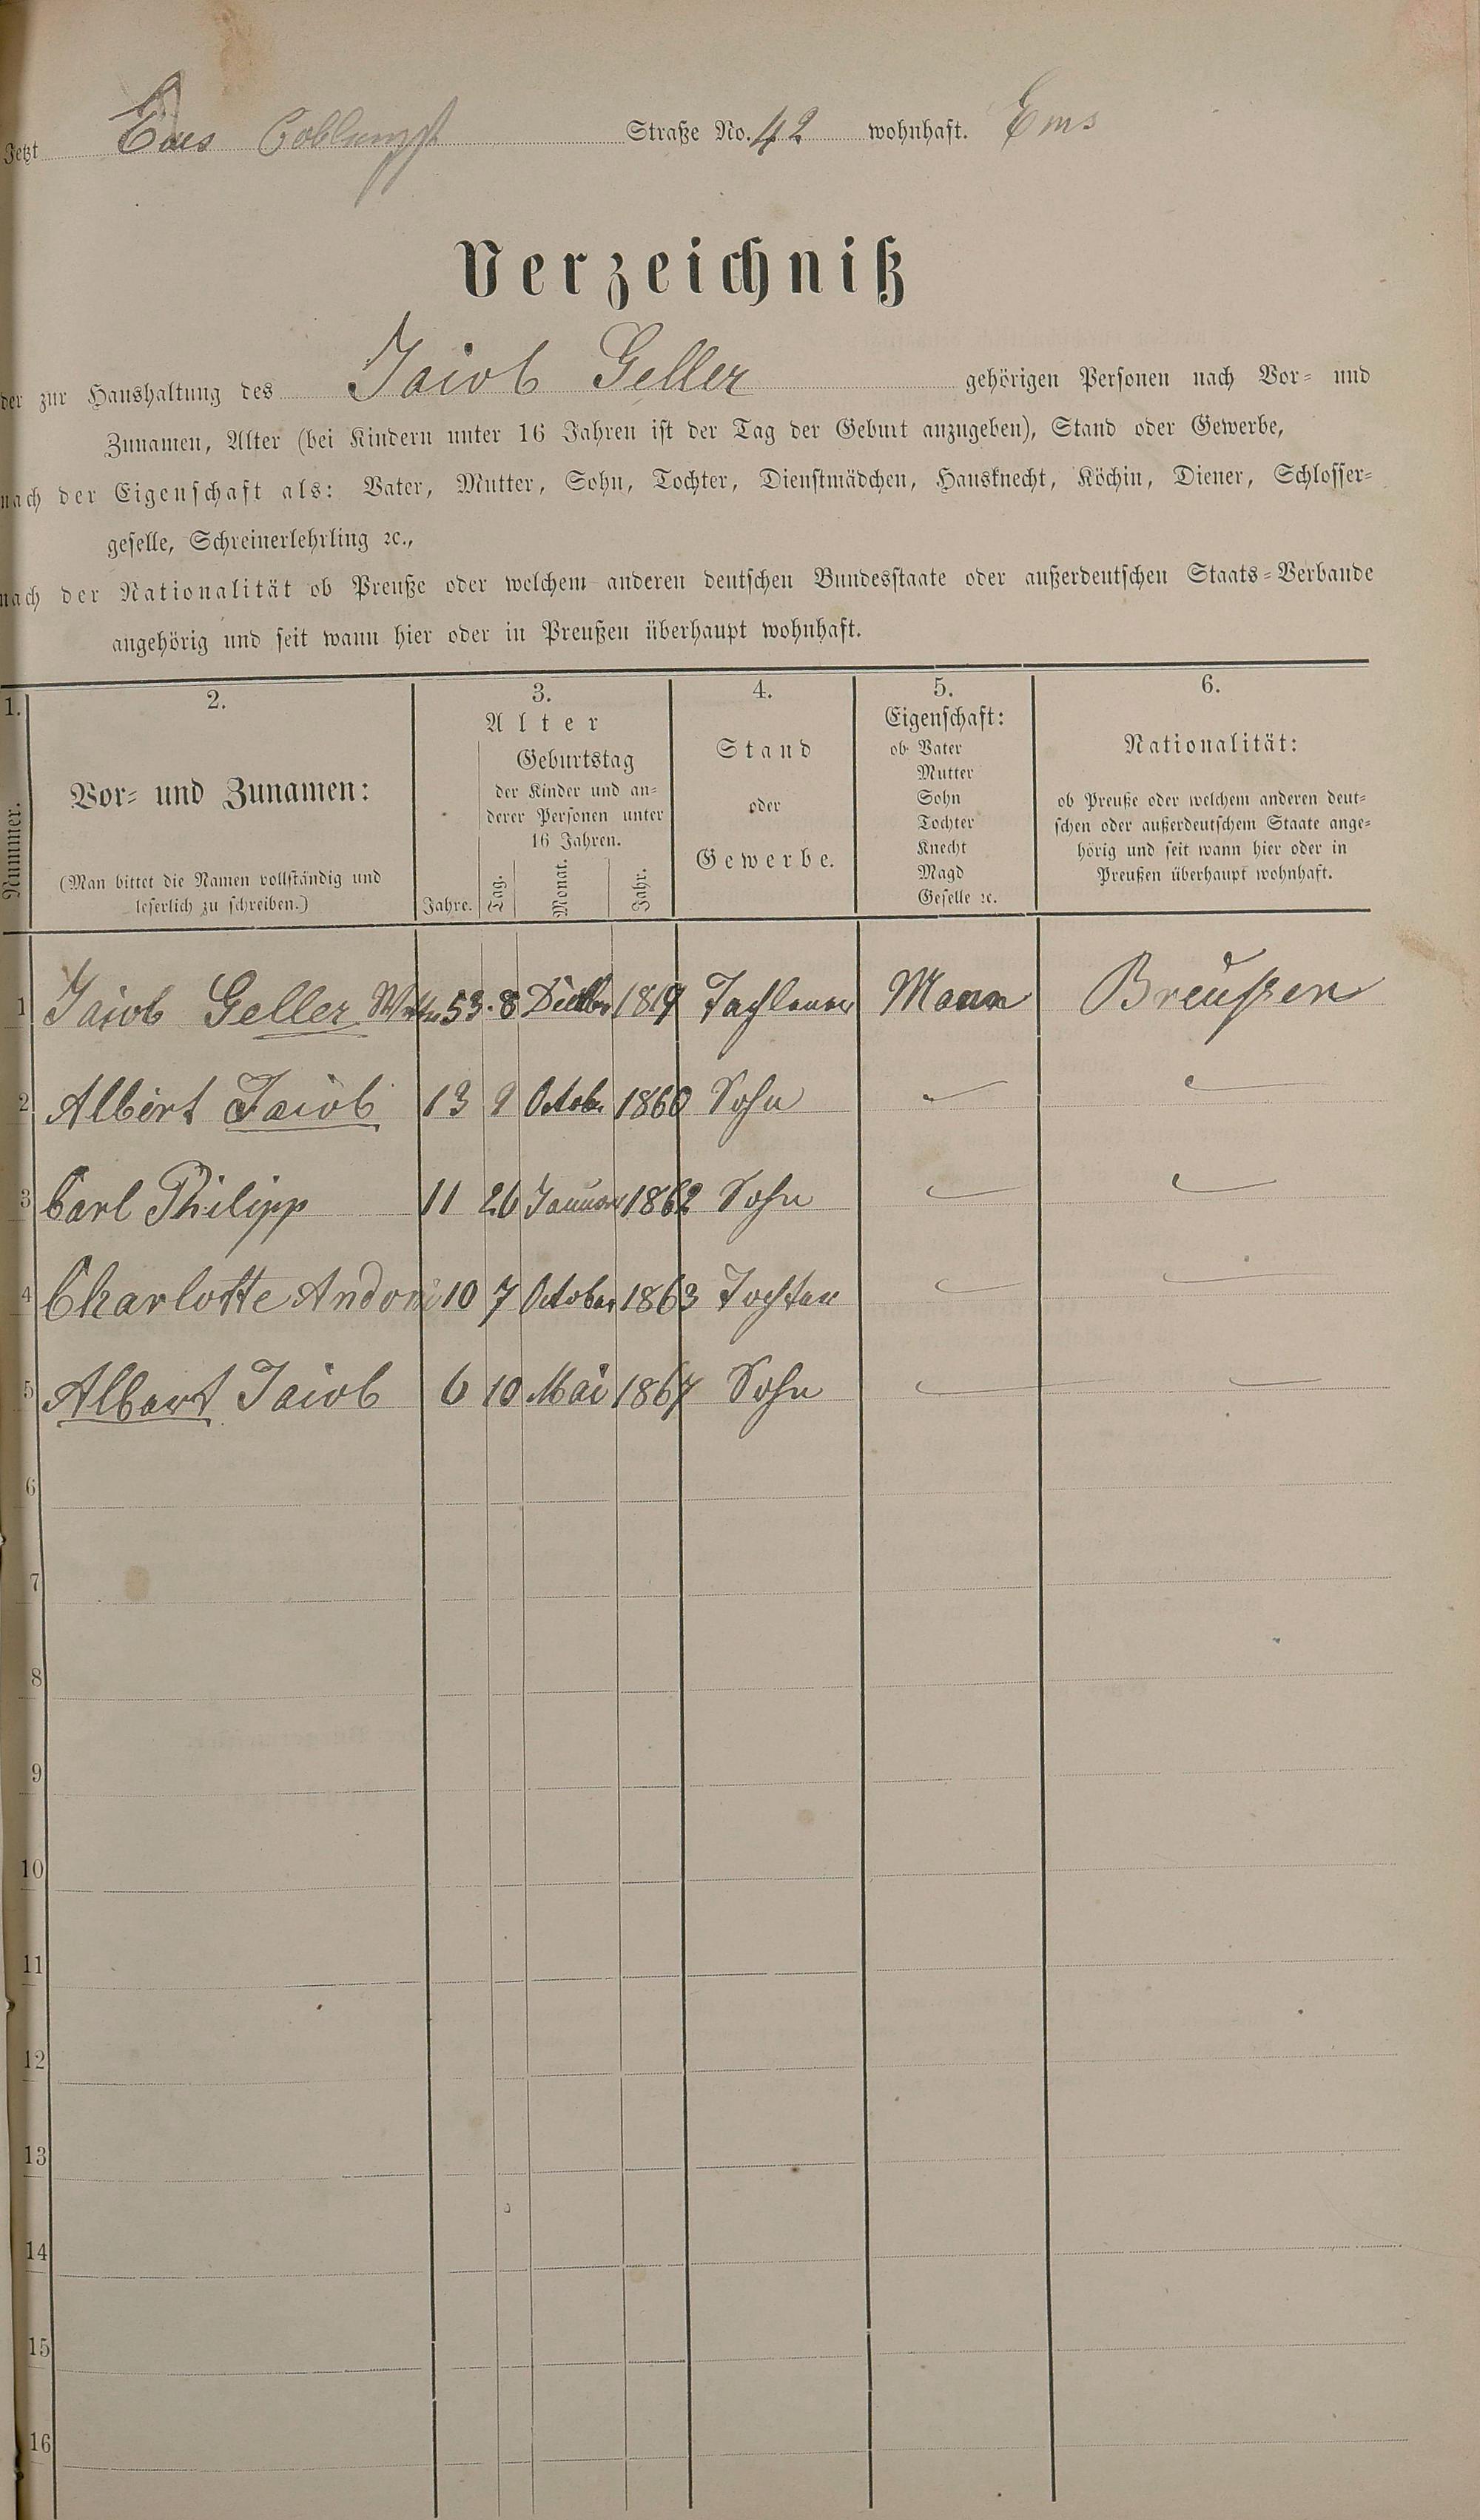 Jetzt Ems Coblenzst Straße No. 42 wohnhaft. Ems
Verzeichniß
der zur Haushaltung des Jacob Geller gehörigen Personen nach Vor- und
Zunamen, Alter (bei Kindern unter 16 Jahren ist der Tag der Geburt anzugeben), Stand oder Gewerbe,
nach der Eigenschaft als: Vater, Mutter, Sohn, Tochter, Dienstmädchen, Hausknecht, Köchin, Diener, Schlosser-
geselle, Schreinerlehrling ꝛc.,
nach der Nationalität ob Preuße oder welchem anderen deutschen Bundesstaate oder außerdeutschen Staats-Verbande
angehörig und seit wann hier oder in Preußen überhaupt wohnhaft.
1.
Nummer.
2.
Vor- und Zunamen:
(Man bittet die Namen vollständig und
leserlich zu schreiben.)
3.
Alter
Jahre.
Geburtstag
der Kinder und an-
derer Personen unter
16 Jahren.
Tag.
Monat.
Jahr.
4.
Stand
oder
Gewerbe.
5.
Eigenschaft:
ob Vater
Mutter
Sohn
Tochter
Knecht
Magd
Geselle ꝛc.
6.
Nationalität:
ob Preuße oder welchem anderen deut-
schen oder außerdeutschem Staate ange-
hörig und seit wann hier oder in
Preußen überhaupt wohnhaft.
1 Jacob Geller 53 8 1819 Mann Breußen
2 Albert Jacob 13 9 Octobr 1860 Sohn
3 Carl Philipp 11 26 Januar 1862 Sohn
4 Charlotte 10 7 October 1863 Tochter
5 Albert Jacob 6 10 Mai 1867 Sohn
6
7
8
9
10
11
12
13
14
15
16